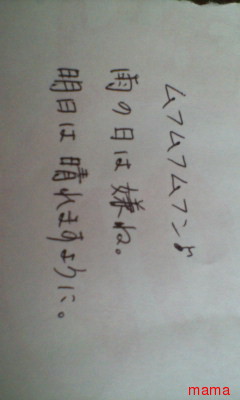 ムフムフムフンよ
雨の日は嫌ね。
明日は晴れますように。
mama